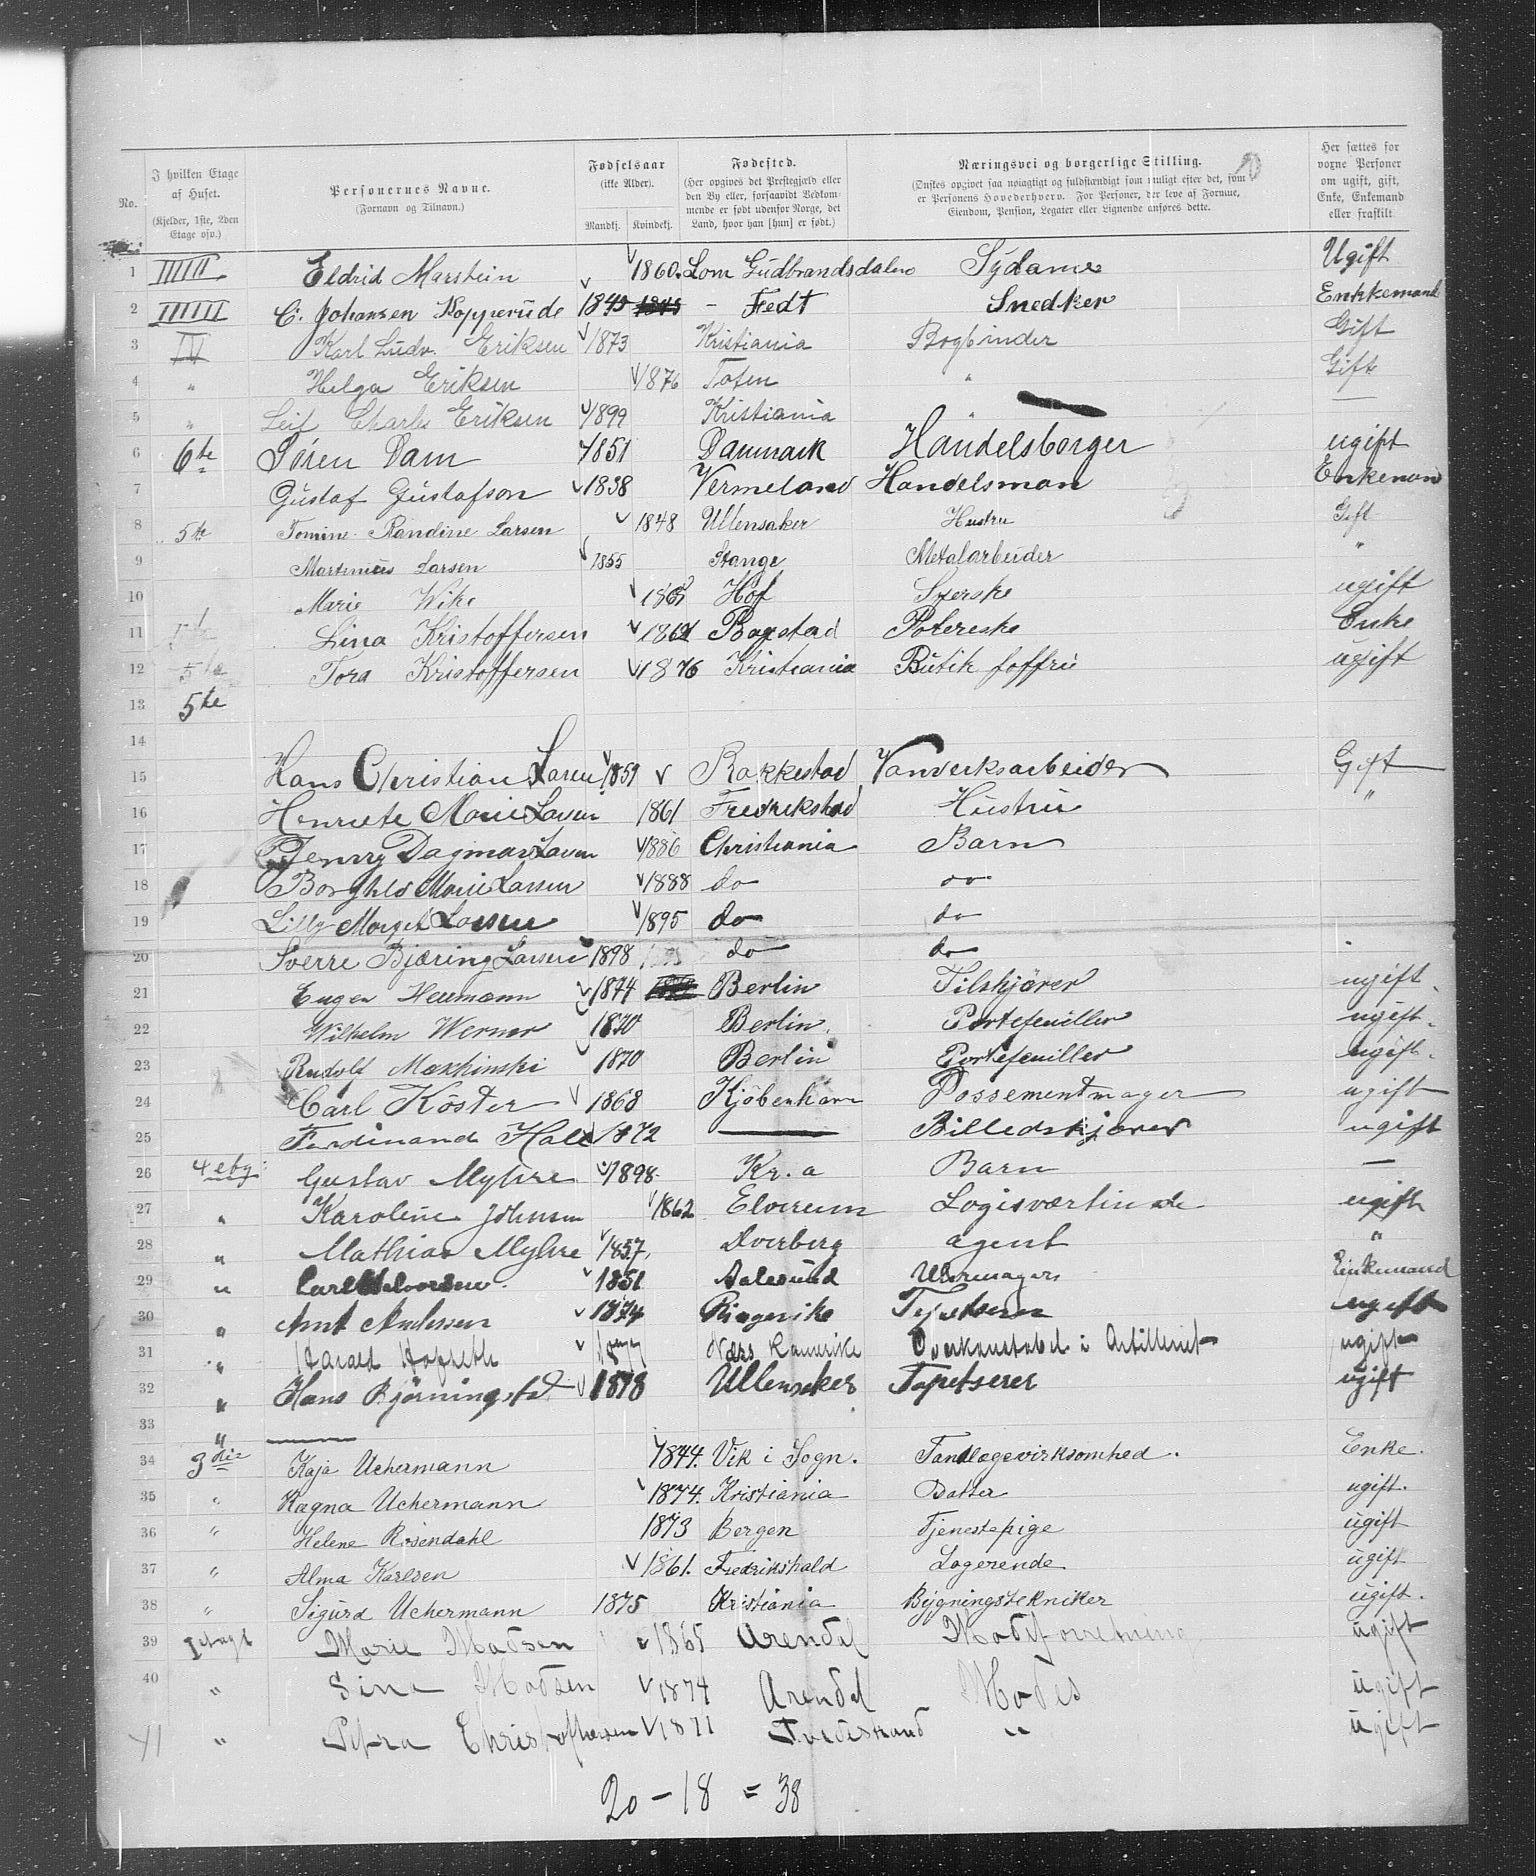 No.
I hvilken Etage af Huset. (Kjelder, 1ste, 2den Etage osv.)
Personernes Navne. (Fornavn og Tilnavn.)
Fødselsaar (ikke Alder). Mandkj. Kvindekj.
Fødested. (Her opgives det Prestegjæld eller den By eller, forsaavidt Vedkommende er født udenfor Norge, det Land, hvor han [hun] er født.)
Næringsvei og borgerlige Stilling. (Ønskes opgivet saa nøiagtigt og fuldstændigt som muligt efter det, som er Personens Hovederhverv. For Personer, der leve af Formue, Eiendom, Pension, Legater eller Lignende anføres dette.)
Her sættes for voxne Personer om ugift, gift, Enke, Enkemand eller fraskilt
1 Eldrid Marstein 1860 Lom Gudbrandsdalen Sydame Ugift
2 C. Johansen Kopperude 1845 - Fedt Snedker Enkkemand
3 IV Karl Ludv. Eriksen 1873 Kristiania Bogbinder Gift
4 " Helga Eriksen 1876 Toten " Gift
5 " Leif Charles Eriksen 1899 Kristiania " —
6 6te Sören Dam 1851 Danmark Handelsborger ugift
7 Gustaf Gustafson 1838 Vermeland Handelsman Enkeman
8 5te Tomine Randine Larsen 1848 Ullensaker Hustru Gift
9 Martinius Larsen 1855 Stange Metalarbeider "
10 Marie Wike Hof Syerske ugift
11 Lina Kristoffersen Polereske Enke
12 5te Tora Kristoffersen 1876 Kristiania Butik ugift
13 5te
14
15 Hans Christian Larsen 1859 Rakkestad Vanverksarbeider Gift
16 Henriete Marie Larsen 1861 Fredrikstad Hustru "
17 Jenny Dagmar Larsen 1886 Christiania Barn
18 Borghild Marie Larsen 1888 do do
19 Lilly Margit Larsen 1895 do do
20 Sverre Bjæring Larsen 1898 do do
21 Eugen Heumann 1874 Berlin Tilskjærer ugift
22 Wilhelm Werner 1870 Berlin. Portefeuiller ugift.
23 Rudolf 1870 Berlin Portefeuiller ugift.
24 Carl Köster 1868 Kjöbenhavn Possementmager ugift
25 Ferdinand Hall 1872 — Billedskjærer ugift
26 4 etg: Gustav Myhre 1898 Kr.a Barn —
27 " Karoline Johnsen 1862 Elverum Logisværtinde ugift
28 " Mathias Myhre 1857 Dverberg agent "
29 " Carl Halvorsen 1851 Aalesund Uhrmager Enkemand
30 " Arnt Andersen 1874 Ringerike Tapetserer ugift
31 " Harald 18 Næs Romerike Overkonstabel i Artilleriet ugift
32 " Hans Bjørningstad 1878 Ullensaker Tapetserer ugift
33 " —
34 3die Kaja Uchermann 1844. Vik i Sogn. Tandlægevirksomhed. Enke.
35 " Ragna Uchermann 1874. Kristiania Datter ugift.
36 " Helene Rosendahl 1873 Bergen Tjenestepige ugift
37 " Alma Karlsen 1861. Fredrikshald Logerende ugift
38 " Sigurd Uchermann 1875 Kristiania Bygningstekniker ugift.
39 Marie Madsen 1865 Arendal Modeforretning ugift
40 " Sina Madsen 1874 Arendal Modes ugift
41 " Petra Christoffersen Tvedestrand " ugift
20 - 18 = 38